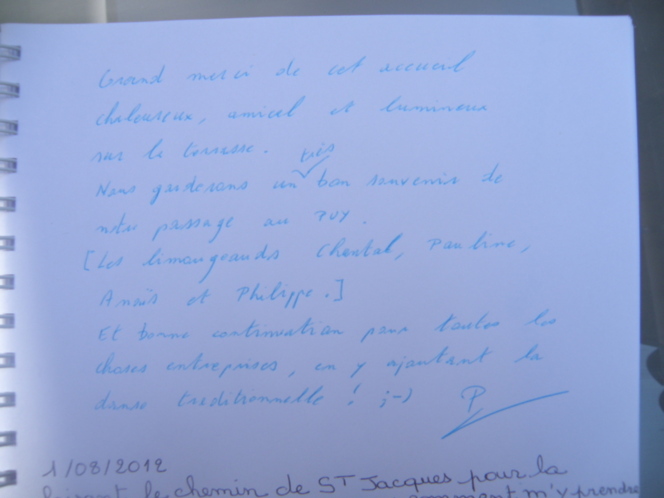 Grand merci de cet accueil
chaleureux, amical et lumineux
sur la terrasse.
très
Nous garderons un bon souvenir de
notre passage au PUY.
[Les limougeauds Chantal, Pauline,
Anaïs et Philippe.]
Et bonne continuation pour toutes les
choses entreprises, en y ajoutant la
danse traditionnelle ! ;-) P
1/08/2012
le chemin de ST Jacques pour la
comment m'y prendre